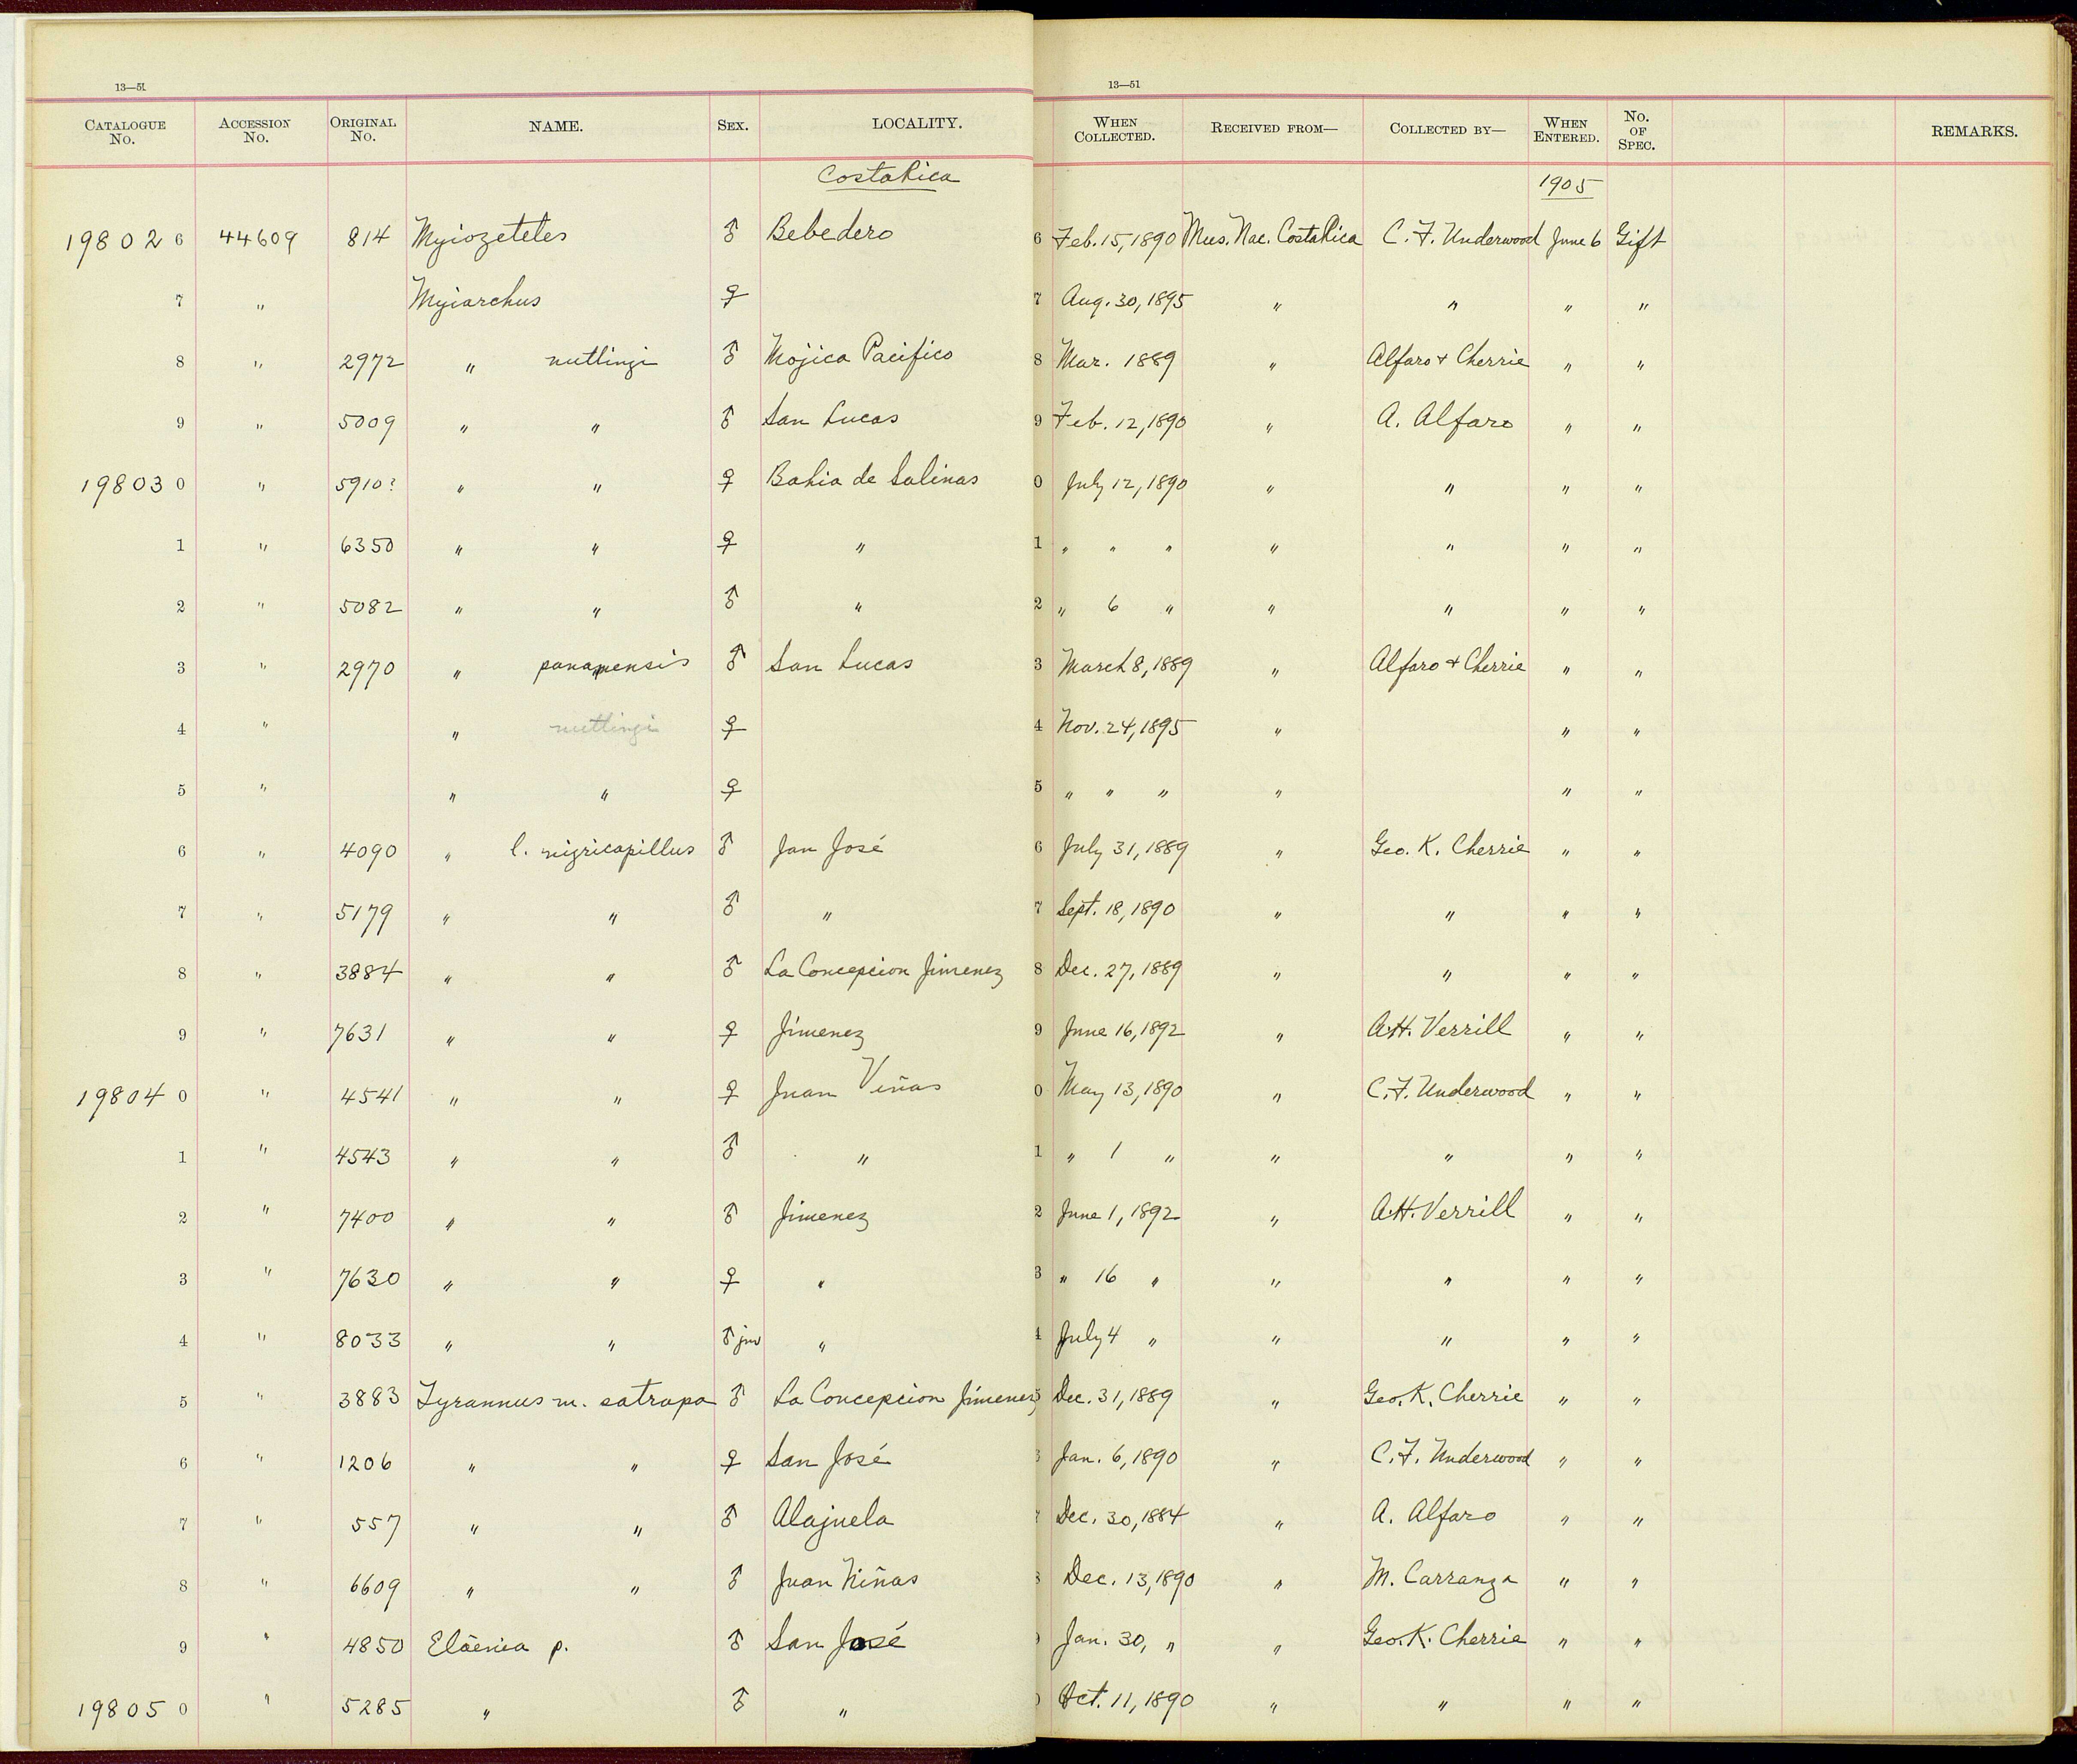 13—51 13—51
CATALOGUE No. ACCESSION No. ORIGINAL No. NAME. SEX. LOCALITY. WHEN COLLECTED. RECEIVED FROM— COLLECTED BY— WHEN ENTERED. No. OF SPEC. REMARKS.
Costa Rica 1905
19802 6 44609 814 Myiozetetes ♂ Bebedero 6 Feb. 15, 1890 Mus. Nac. Costa Rica C. F. Underwood June 6 Gift
7 " Myiarchus ♀ 7 Aug. 30, 1895 " " " "
8 " 2972 " nuttingi ♂ Mojica Pacifico 8 Mar. 1889 " Alfaro + Cherrie " "
9 " 5009 " " ♂ San Lucas 9 Feb. 12, 1890 " A. Alfaro " "
19803 0 " 5910? " " ♀ Bahia de Salinas 0 July 12, 1890 " " " "
1 " 6350 " " ♀ " 1 " " " " " " "
2 " 5082 " " ♂ " 2 " 6 " " " " "
3 " 2970 " panamensis ♂ San Lucas 3 March 8, 1889 " Alfaro + Cherrie " "
4 " " nuttingi ♀ 4 Nov. 24, 1895 " " "
5 " " " ♀ 5 " " " " " "
6 " 4090 " l. nigricapillus ♂ San José 6 July 31, 1889 " Geo. K. Cherrie " "
7 " 5179 " " ♂ " 7 Sept. 18, 1890 " " " "
8 " 3884 " " ♂ La Concepcion Jimenez 8 Dec. 27, 1889 " " " "
9 " 7631 " " ♀ Jimenez 9 June 16, 1892 " A.H. Verrill " "
19804 0 " 4541 " " ♀ Juan Viñas 0 May 13, 1890 " C. F. Underwood " "
1 " 4543 " " ♂ " 1 " 1 " " " " "
2 " 7400 " " ♂ Jimenez 2 June 1, 1892 " A.H. Verrill " "
3 " 7630 " " ♀ " 3 " 16 " " " " "
4 " 8033 " " ♂ juv " 4 July 4 " " " " "
5 " 3883 Tyrannus m. satrapa ♂ La Concepcion Jimenez 5 Dec. 31, 1889 " Geo. K. Cherrie " "
6 " 1206 " " ♀ San José Jan. 6, 1890 " C. F. Underwood " "
7 " 557 " " ♂ Alajuela Dec. 30, 1884 " A. Alfaro " "
8 " 6609 " " ♂ Juan Viñas 8 Dec. 13, 1890 " M. Carranza " "
9 " 4850 Eläenia p. ♂ San José Jan. 30, " " Geo. K. Cherrie " "
19805 0 " 5285 " ♂ " Oct. 11, 1890 " " " "